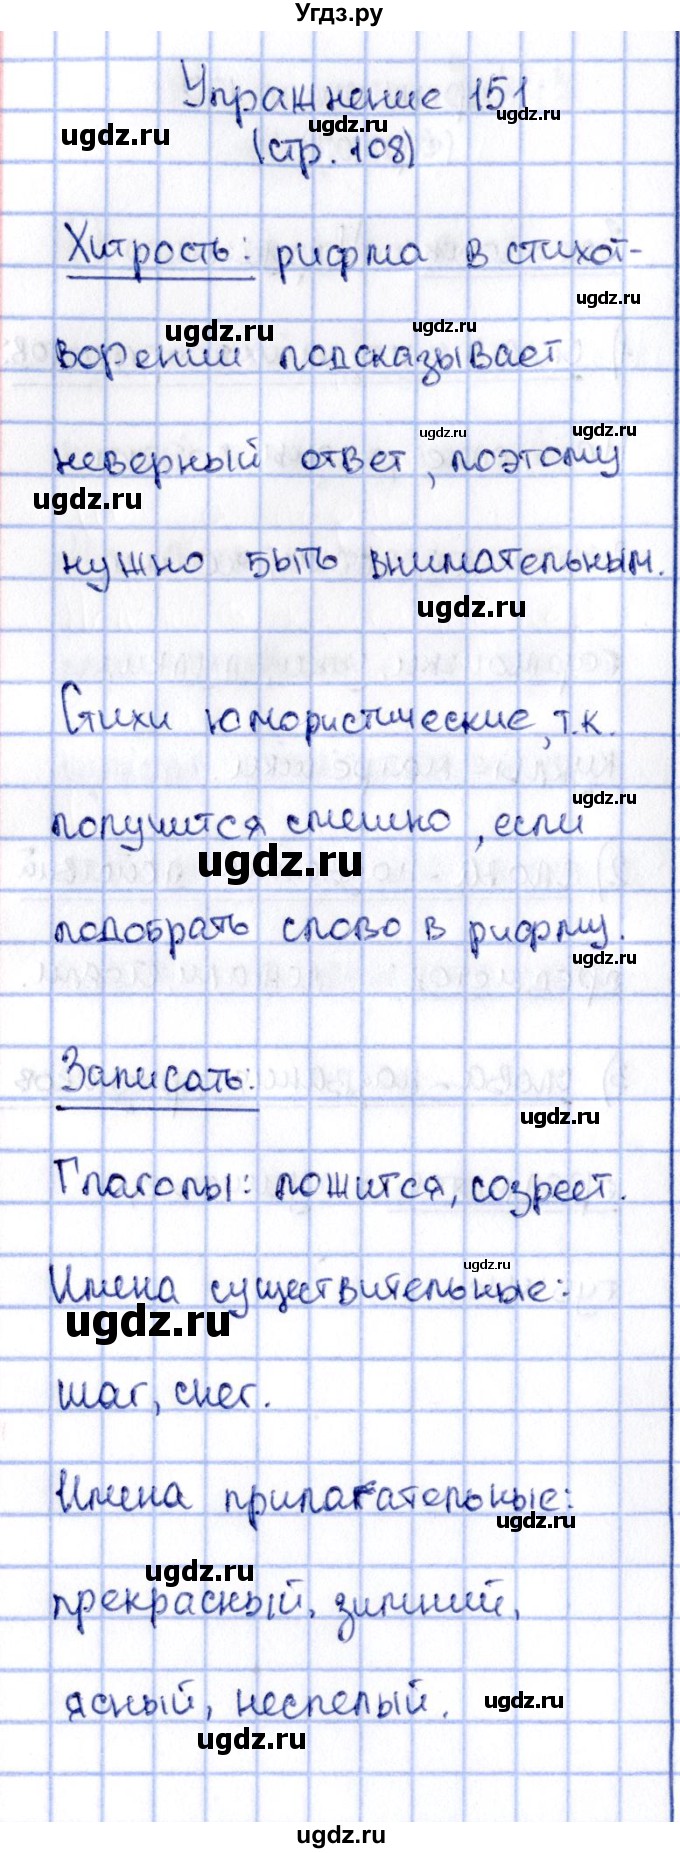 Угдз.ру
Упражнение 151
ugdz.ru
ugdz.ru
ugdz.ru
(стр. 108)
Хитрость: рифма в стихот-
ugdz.ru
ugdz.ru
ugdz.ru
ворении подсказывает
ugdz.ru
ugdz.ru
неверный ответ, поэтому
ugdz.ru
нужно быть внимательным.
ugdz.ru
Стихи юмористические, т.к.
ugdz.ru
получится смешно, если
ugdz.ru
подобрать слово в рифму.
ugdz.ru
Записать:
ugdz.ru
Глаголы: ложится, созреет.
ugdz.ru
Имена существительные:
ugdz.ru
шаг, снег.
Имена прилагательные:
ugdz.ru
ugdz.ru
прекрасный, зимний,
ясный, неспелый.
ugdz.ru
ugdz.ru
ugdz.ru